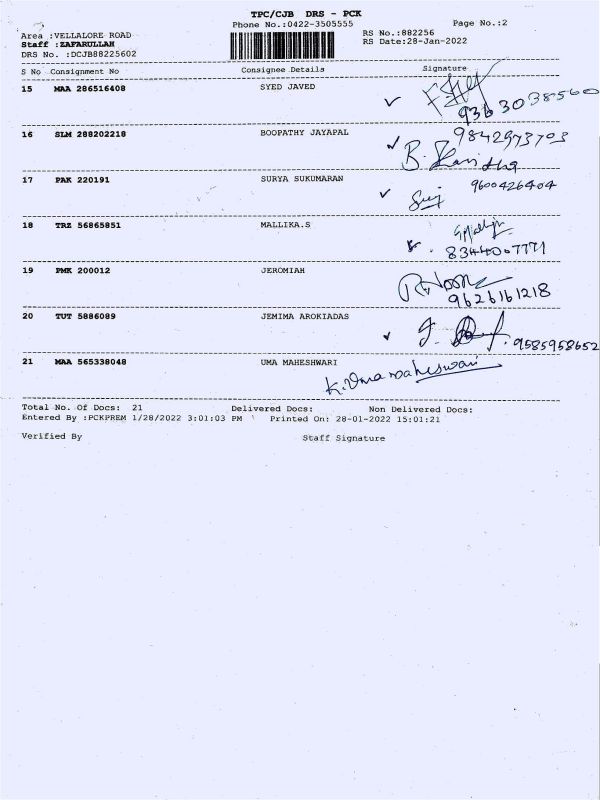 TPC/CJB DRS - PCK
Phone No.:0422-3505555 Page No.:2
Area :VELLALORE ROAD RS No.:882256
Staff :ZAFARULLAH RS Date:28-Jan-2022
DRS No. :DCJB88225602
S No Consignment No Consignee Details Signature
15 MAA 286516408 SYED JAVED
9363038560
16 SLM 288202218 BOOPATHY JAYAPAL 9842973703
B.
17 PAK 220191 SURYA SUKUMARAN 9600426404
18 TRZ 56865851 MALLIKA.S
8344067771
19 PMK 200012 JEROMIAH
9626161218
20 TUT 5886089 JEMIMA AROKIADAS
J. 9585958652
21 MAA 565338048 UMA MAHESHWARI
K. Uma maheswari
Total No. Of Docs: 21 Delivered Docs: Non Delivered Docs:
Entered By :PCKPREM 1/28/2022 3:01:03 PM Printed On: 28-01-2022 15:01:21
Verified By Staff Signature